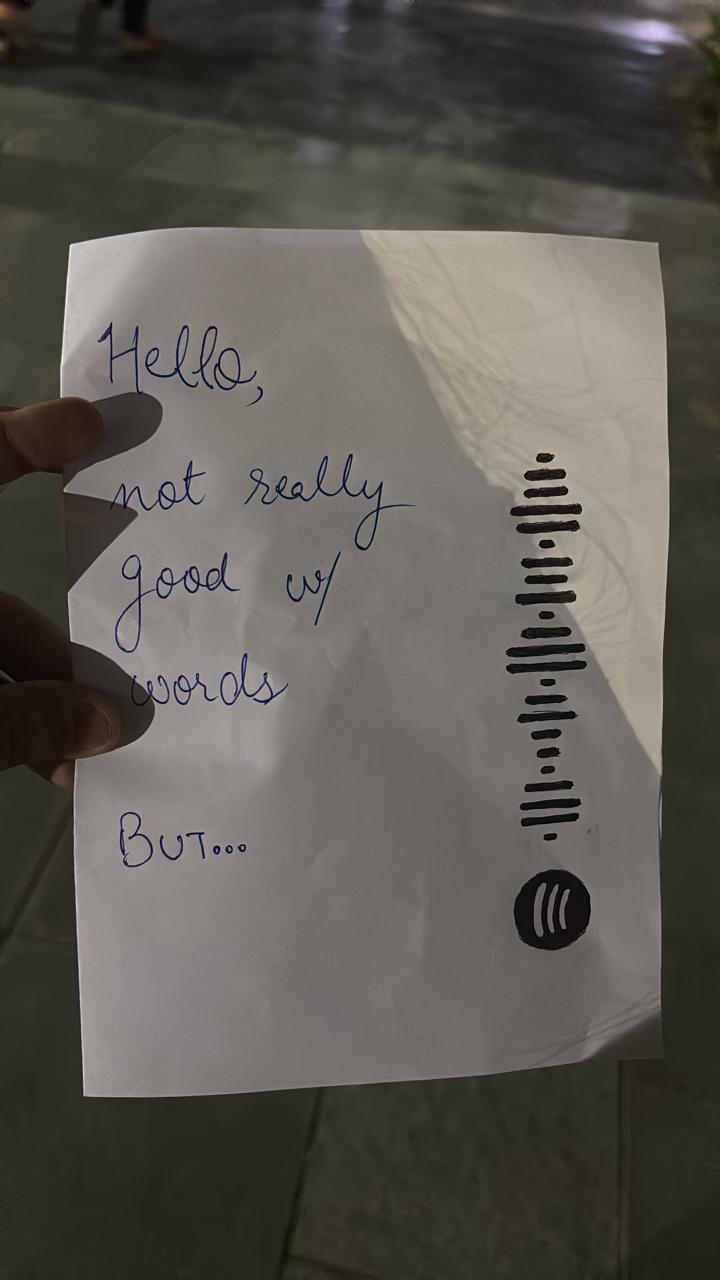 Hello,
not really
good w/
words
BUT...